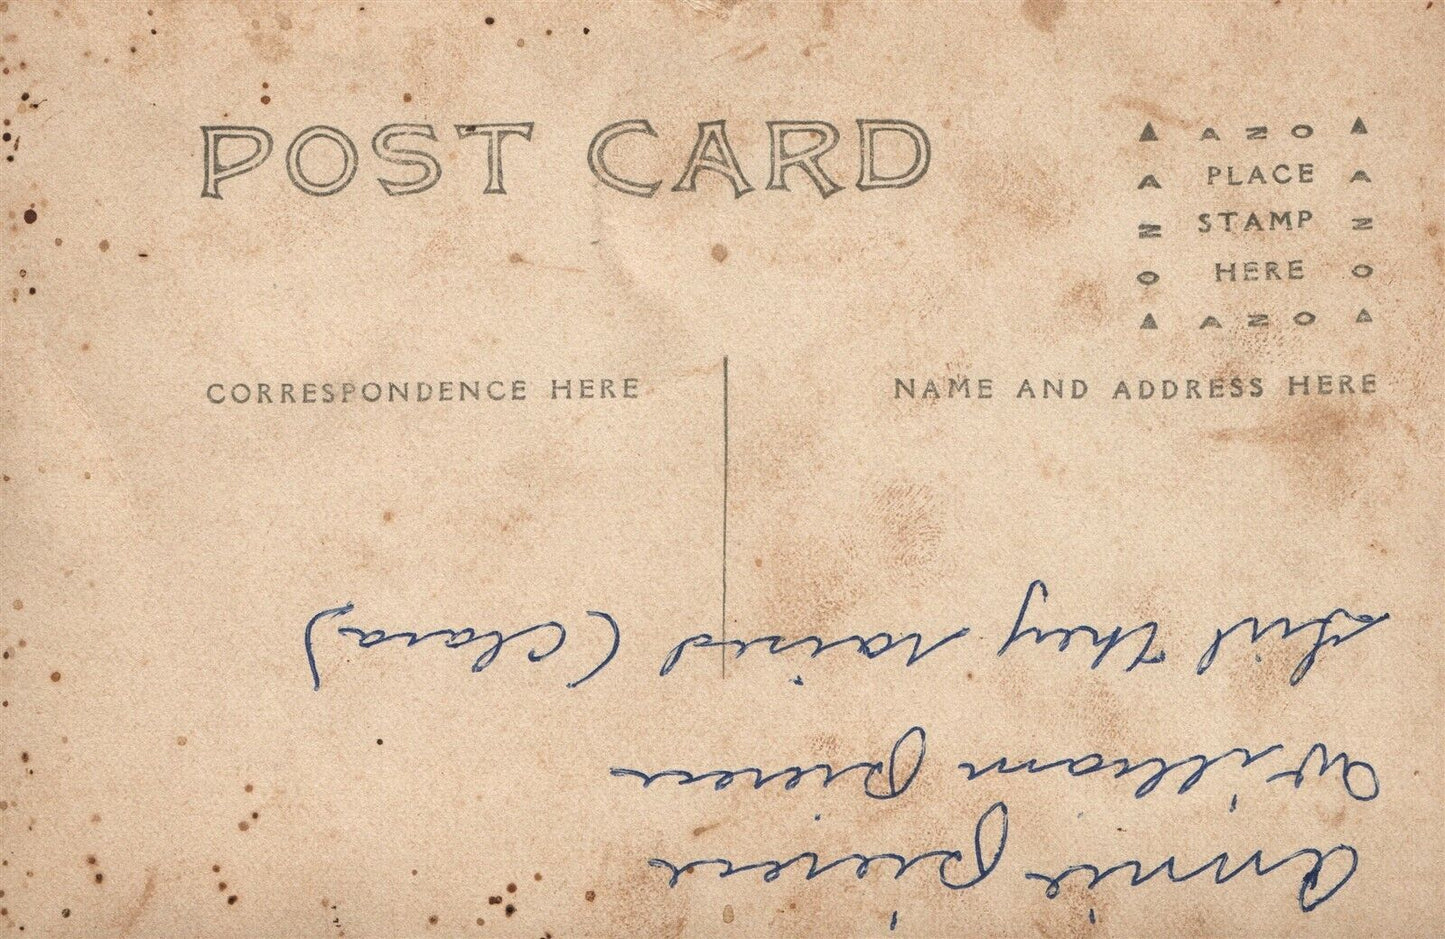 POST CARD
AZO
PLACE
STAMP
HERE
AZO
AZO
AZO
CORRESPONDENCE HERE
NAME AND ADDRESS HERE
Annie Pierce
William Pierce
Girl they raised (Clara)